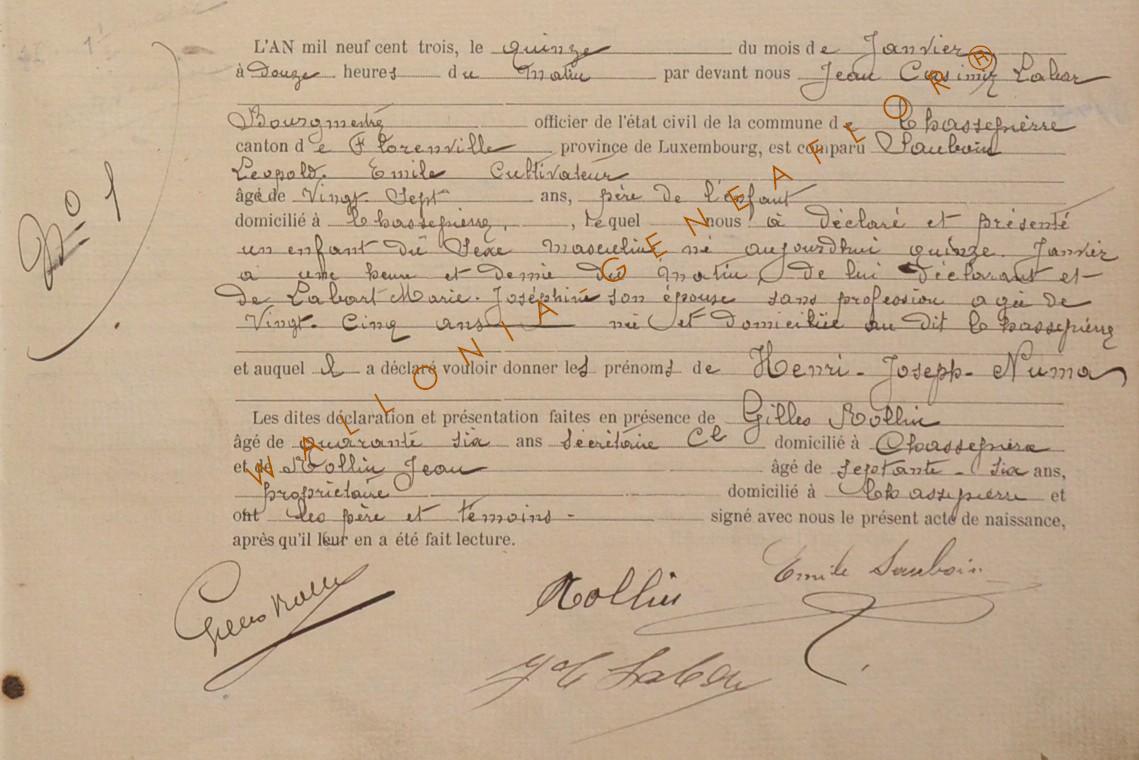 N° 1
L'AN mil neuf cent trois, le quinze du mois de Janvier
à douze heures du matin par devant nous Jean Casimir Labar
Bourgmestre officier de l'état civil de la commune de Chassepierre
canton de Florenville province de Luxembourg, est comparu Sauboin
Leopold. Emile Cultivateur
âgé de Vingt Sept ans, père de l'enfant
domicilié à Chassepierre, , lequel nous à déclaré et présenté
un enfant du Sexe Masculin né aujourdhui quinze Janvier
a une heure et demie du matin, de lui déclarant et
de Labart Marie. Joséphine son épouse sans profession agée de
Vingt. Cinq ans né et domiciliée au dit Chassepierre
et auquel il a déclaré vouloir donner les prénoms de Henri - Joseph - Numa
Les dites déclaration et présentation faites en présence de Gilles Rollin
âgé de quarante six ans Secrétaire Cl domicilié à Chassepierre
et de Rollin Jean âgé de septante - six ans,
propriétaire domicilié à Chassepierre et
ont les père et témoins - signé avec nous le présent acte de naissance,
après qu'il leur en a été fait lecture.
Emile Sauboin
Gilles Rollin Rollin
WALLONIA GENEAFEOR®